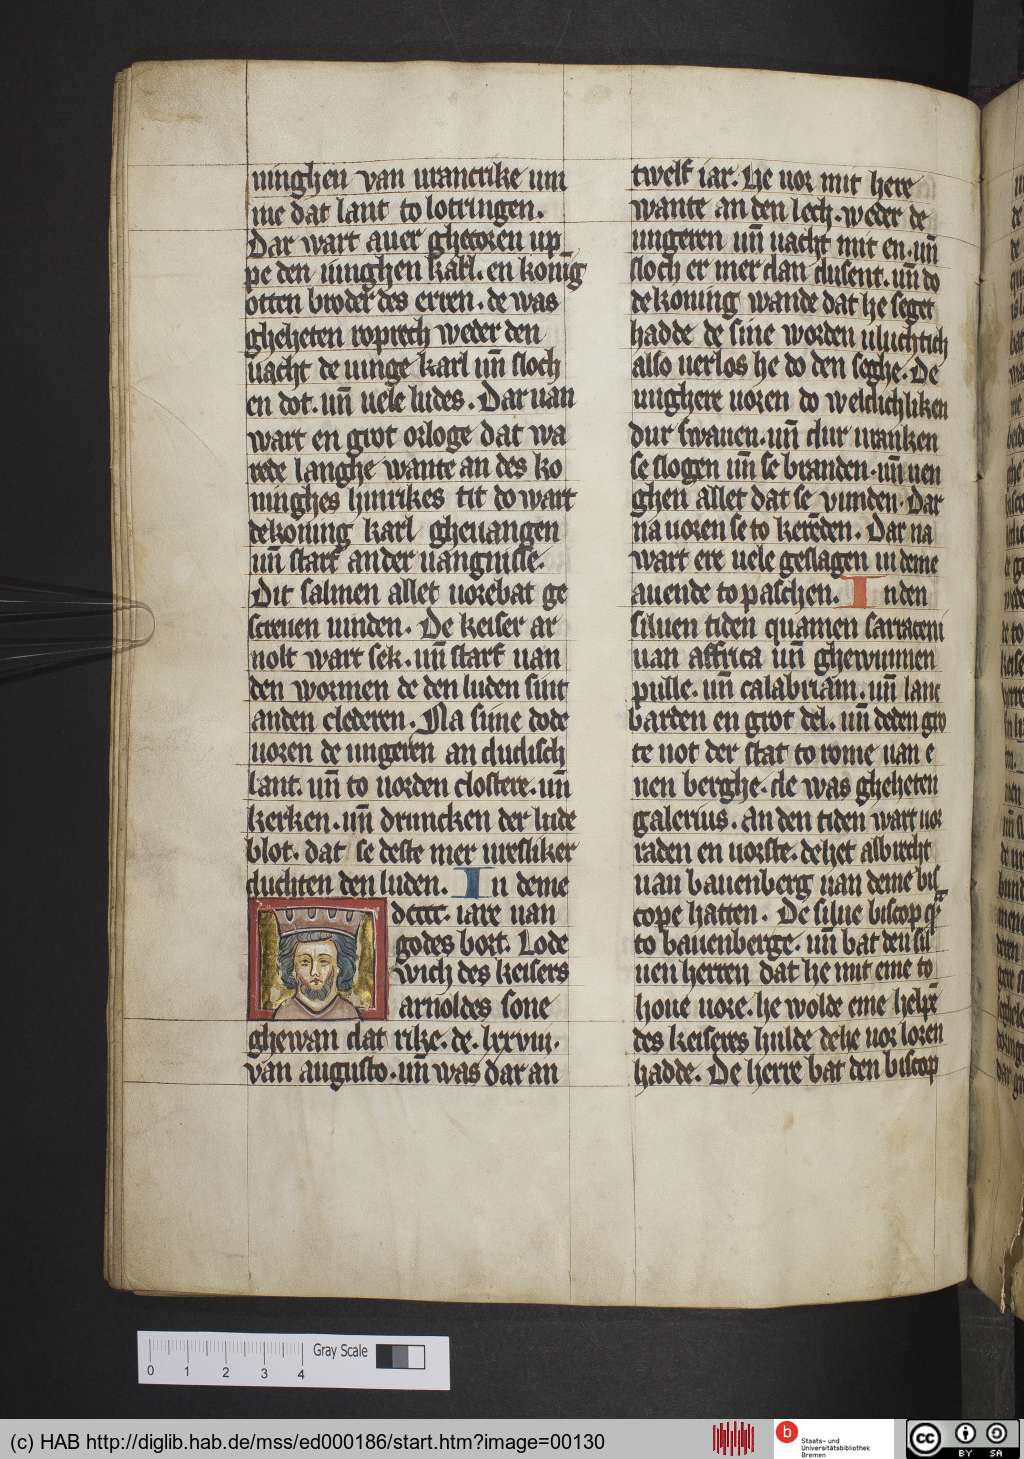 ninghen van vrancrike um
me dat lant to lotringen.
Dar wart auer ghecoren up
pe den ninghen karl. en konīg
otten broder des erren. de was
gheheten roprech weder den
uacht de ninge karl uñ sloch
en dot. uñ uele ludes. Dar uan
wart en grot orloge dat wa
rede langhe wante an des ko
ninghes hinrikes tit do wart
de koning karl gheuangen
uñ starf an der uangnisse.
Dit salmen allet uorebat ge
screuen uinden. De keiser ar
nolt wart sek. uñ starf uan
den wormen de den luden sint
an den clederen. Na sime dode
uoren de ungeren an dudisch
lant. uñ to uorden clostere. uñ
kerken. uñ druncken der lude
blot. dat se deste mer ureisliker
duchten den luden. In deme
dcccc. iare uan
godes bort. Lode
wich des keisers
arnoldes sone
ghewan dat rike. de. lxxviii.
van augusto. uñ was dar an
twelf iar. He uor mit here
wante an den lech. weder de
ungeren uñ uacht mit en. uñ
sloch er mer dan dusent. uñ do
de koning wande dat he seget
hadde de sine worden uluchtich
also uerlos he do den seghe. De
unghere uoren do weldichliken
dur swauen. uñ dur uranken
se slogen uñ se branden. uñ uen
ghen allet dat se vunden. Dar
na uoren se to kerēden. Dar na
wart ere uele geslagen in deme
auende to paschen. In den
siluen tiden quamen sarraceni
uan affrica uñ ghewunnen
pulle. uñ calabriam. uñ lanc
barden en grot del. uñ deden gro
te not der stat to rome uan e
nen berghe. de was gheheten
galerius. An den tiden wart uor
raden en uorste. de het albrecht
uan bauenberg uan deme bis
cope hatten. De silue biscop q̄m
to bauenberge. uñ bat den sil
uen herren dat he mit eme to
houe uore. he wolde eme helpē
des keiseres hulde de he uor loren
hadde. De herre bat den biscop
Gray Scale
0 1 2 3 4
(c) HAB http://diglib.hab.de/mss/ed000186/start.htm?image=00130
Staats- und
Universitätsbibliothek
Bremen
cc BY SA